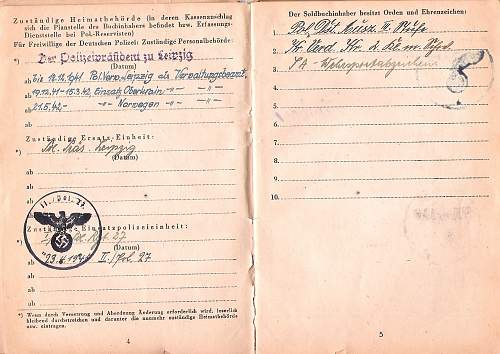 Zuständige Heimatbehörde (in deren Kassenanschlag
sich die Planstelle des Buchinhabers befindet bzw. Erfassungs-
Dienststelle bei Pol.-Reservisten)
Für Freiwillige der Deutschen Polizei: Zuständige Personalbehörde:
*) Der Polizeipräsident zu Leipzig
(Datum)
ab bis 18.12.1941 Pol.Verw. Leipzig als Verwaltungsbeamt.
ab 19.12.41-15.3.42, Einsatz Oberkrain -"- -"-
ab 21.5.42,- -"- Norwegen -"- -"-
ab
Zuständige Ersatz-Einheit:
*) Leipzig
(Datum)
ab
ab
ab
ab
II./Pol. 27
Zuständige Einsatzpolizeieinheit:
*) 27
(Datum)
ab II./Pol. 27
ab
ab
ab
*) Wenn durch Versetzung und Abordnung Änderung erforderlich wird, leserlich
bleibend durchstreichen und darunter die nunmehr zuständige Heimatbehörde
usw. eintragen.
4
Der Soldbuchinhaber besitzt Orden und Ehrenzeichen:
1. Pol. III. Stufe
2. Kr. Verd. Kr. 2. Kl. m. Schw.
3. SA-Wehrsportabzeichen
4.
5.
6.
7.
8.
9.
10.
5